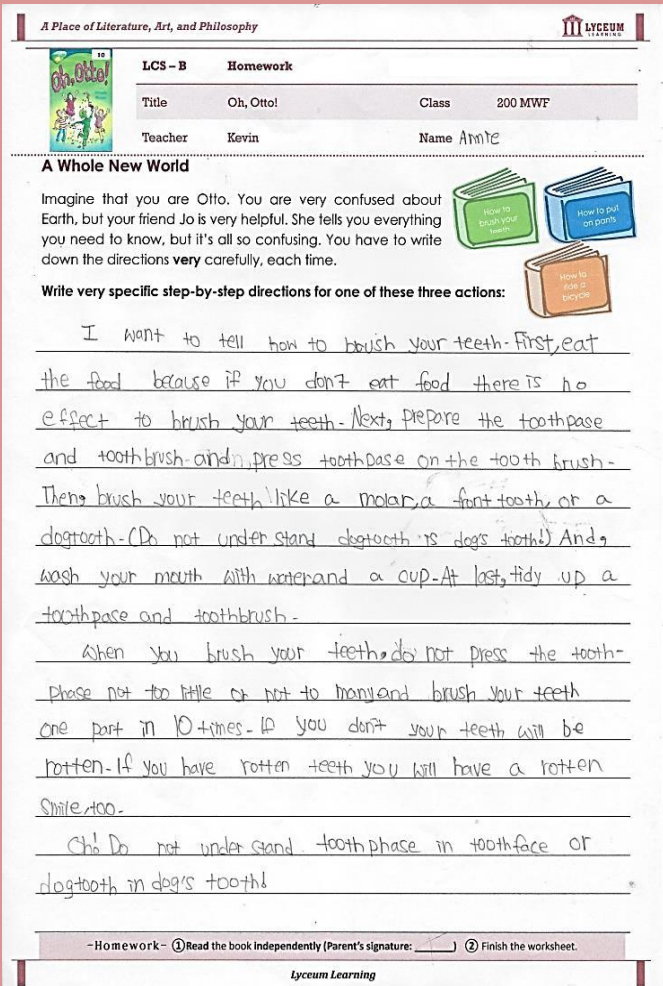 A Place of Literature, Art, and Philosophy
LYCEUM
LEARNING
10
Oh, Otto!
LCS – B Homework
Title Oh, Otto! Class 200 MWF
Teacher Kevin Name Annie
A Whole New World
Imagine that you are Otto. You are very confused about
Earth, but your friend Jo is very helpful. She tells you everything
you need to know, but it's all so confusing. You have to write
down the directions very carefully, each time.
How to
brush your
teeth
How to put
on pants
How to
ride a
bicycle
Write very specific step-by-step directions for one of these three actions:
I want to tell how to brush your teeth. First, eat
the food because if you don't eat food there is no
effect to brush your teeth. Next, prepare the toothpase
and toothbrush and press toothpase on the tooth brush.
Then, brush your teeth like a molar, a font tooth, or a
dogtooth. (Do not under stand dogtooth is dog's tooth!) And,
wash your mouth with water and a cup. At last, tidy up a
toothpase and toothbrush.
When you brush your teeth, do not press the tooth-
phase not too little or not to many and brush your teeth
one part in 10 times. If you don't your teeth will be
rotten. If you have rotten teeth you will have a rotten
smile, too.
Oh! Do not under stand toothphase in toothface or
dogtooth in dog's tooth!
-Homework- ①Read the book independently (Parent's signature: ______) ② Finish the worksheet.
Lyceum Learning